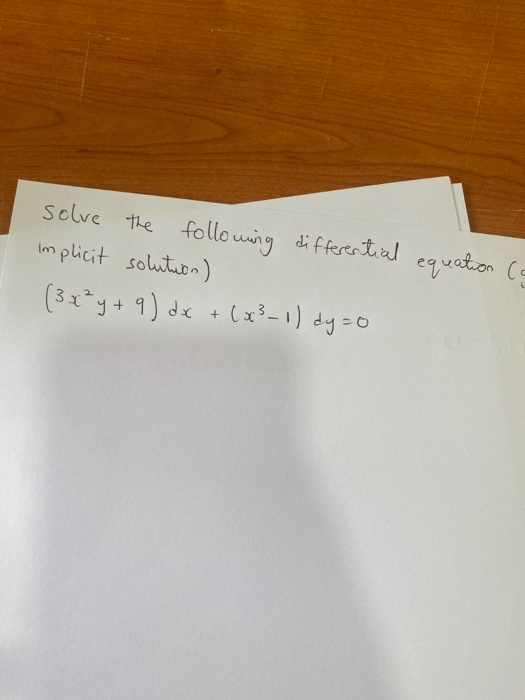 solve the following differential equation (
implicit solution)
(3x²y + 9) dx + (x³-1) dy=0